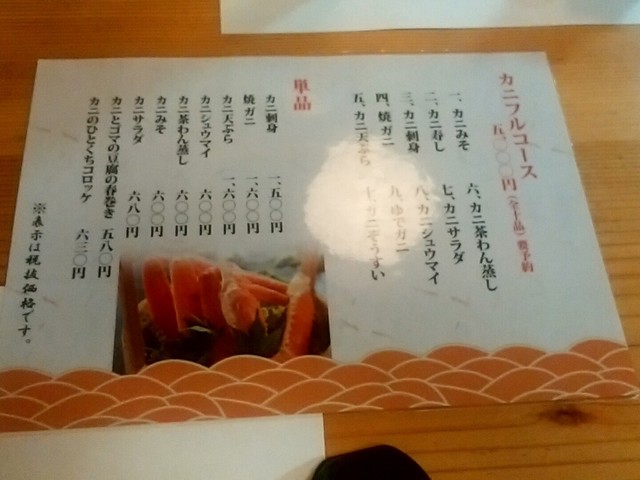 カニフルコース
五、〇〇〇円(全十品)要予約
一、カニみそ
二、カニ寿し
三、カニ刺身
四、焼ガニ
五、カニ天ぷら
六、カニ茶わん蒸し
七、カニサラダ
八、カニシュウマイ
九、ゆでガニ
十、カニぞうすい
単品
カニ刺身 一、五〇〇円
焼ガニ 一、六〇〇円
カニ天ぷら 一、六〇〇円
カニシュウマイ 六〇〇円
カニ茶わん蒸し 六〇〇円
カニみそ 六〇〇円
カニサラダ 六八〇円
カニとゴマの豆腐の春巻き 五八〇円
カニのひとくちコロッケ 六三〇円
※表示は税抜価格です。